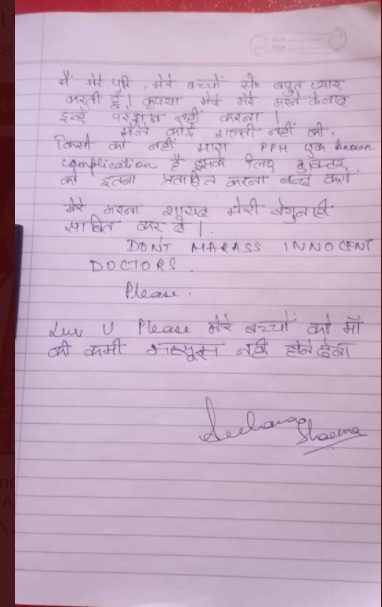 मैं मेरे पति, मेरे बच्चों से बहुत प्यार
करती हूँ। कृपया मेरे मेरे मरने के बाद
इन्हे परेशान नहीं करना।
मैंने कोई गलती नहीं की,
किसी को नहीं मारा PPH एक known
complication है इसके लिए डॉक्टर
को इतना प्रताड़ित करना बन्द करो.
मेरा मरना शायद मेरी बेगुनाही
साबित कर दे।
DONT HARASS INNOCENT
DOCTORS.
Please.
Luv U Please मेरे बच्चों को माँ
की कमी महसूस नहीं होने देना
Sharma